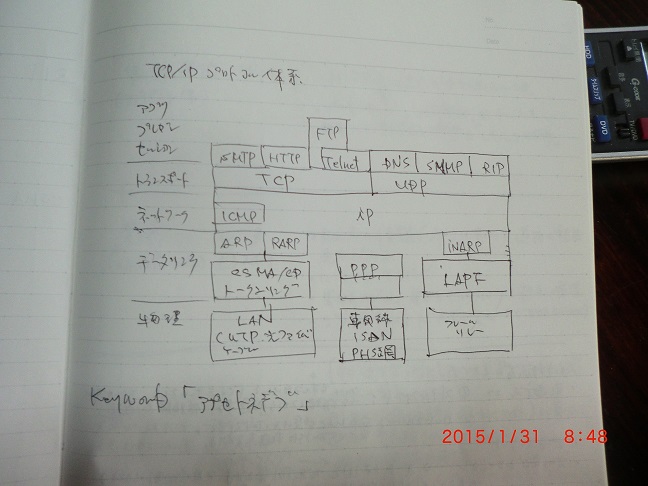 TCP/IP プロトコル体系
アプリ
プレゼン
セッション
FTP
SMTP HTTP Telnet DNS SNMP RIP
トランスポート TCP UDP
ネットワーク ICMP IP
ARP RARP INARP
データリンク CSMA/CD PPP LAPF
トークンリング
物理 LAN 専用線 フレーム
(UTP.光ファイバ ISDN リレー
ケーブル PHS網
Keyword 「アプセトネデブ」
2015/1/31 8:48
G-CODE
HDD
DVD